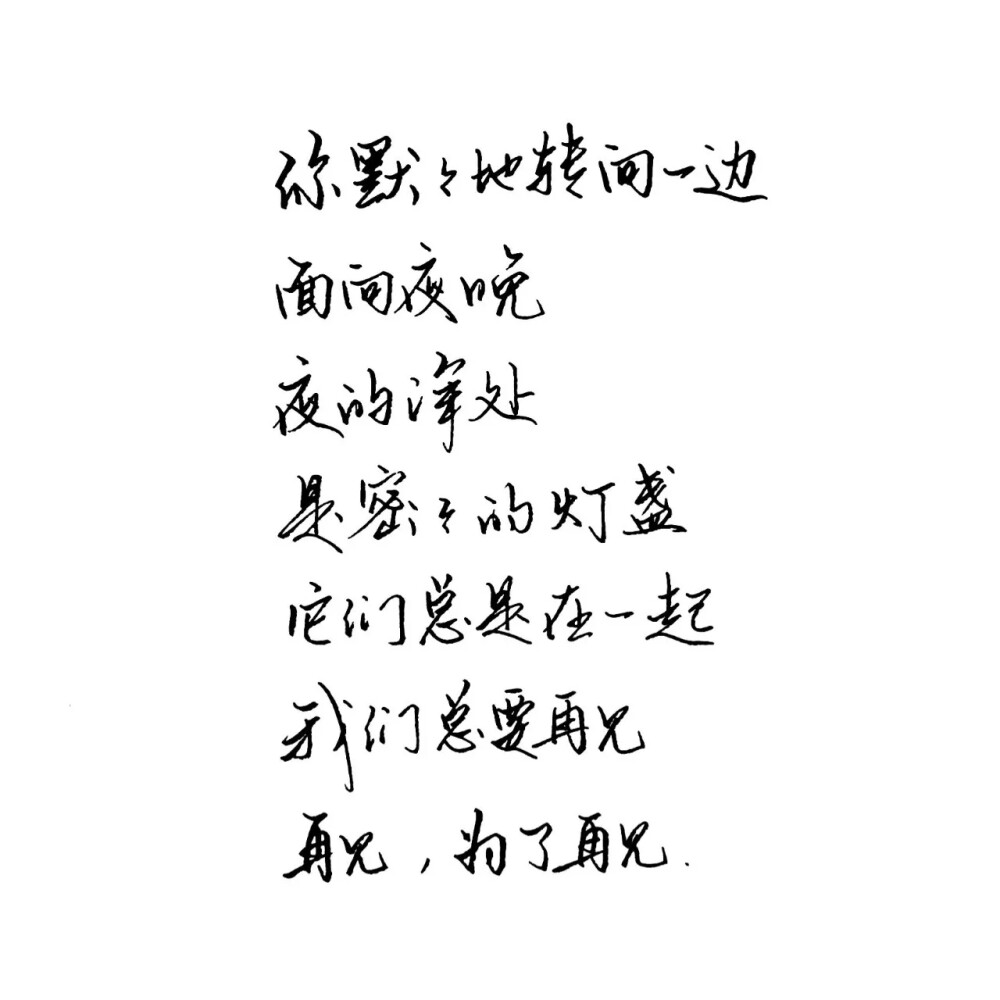 你默々地转向一边
面向夜晚
夜的深处
是密々的灯盏
它们总是在一起
我们总要再见
再见，为了再见.